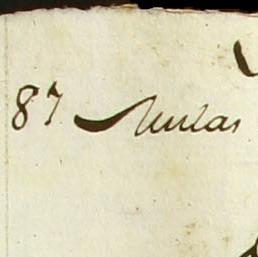 87 Mulas